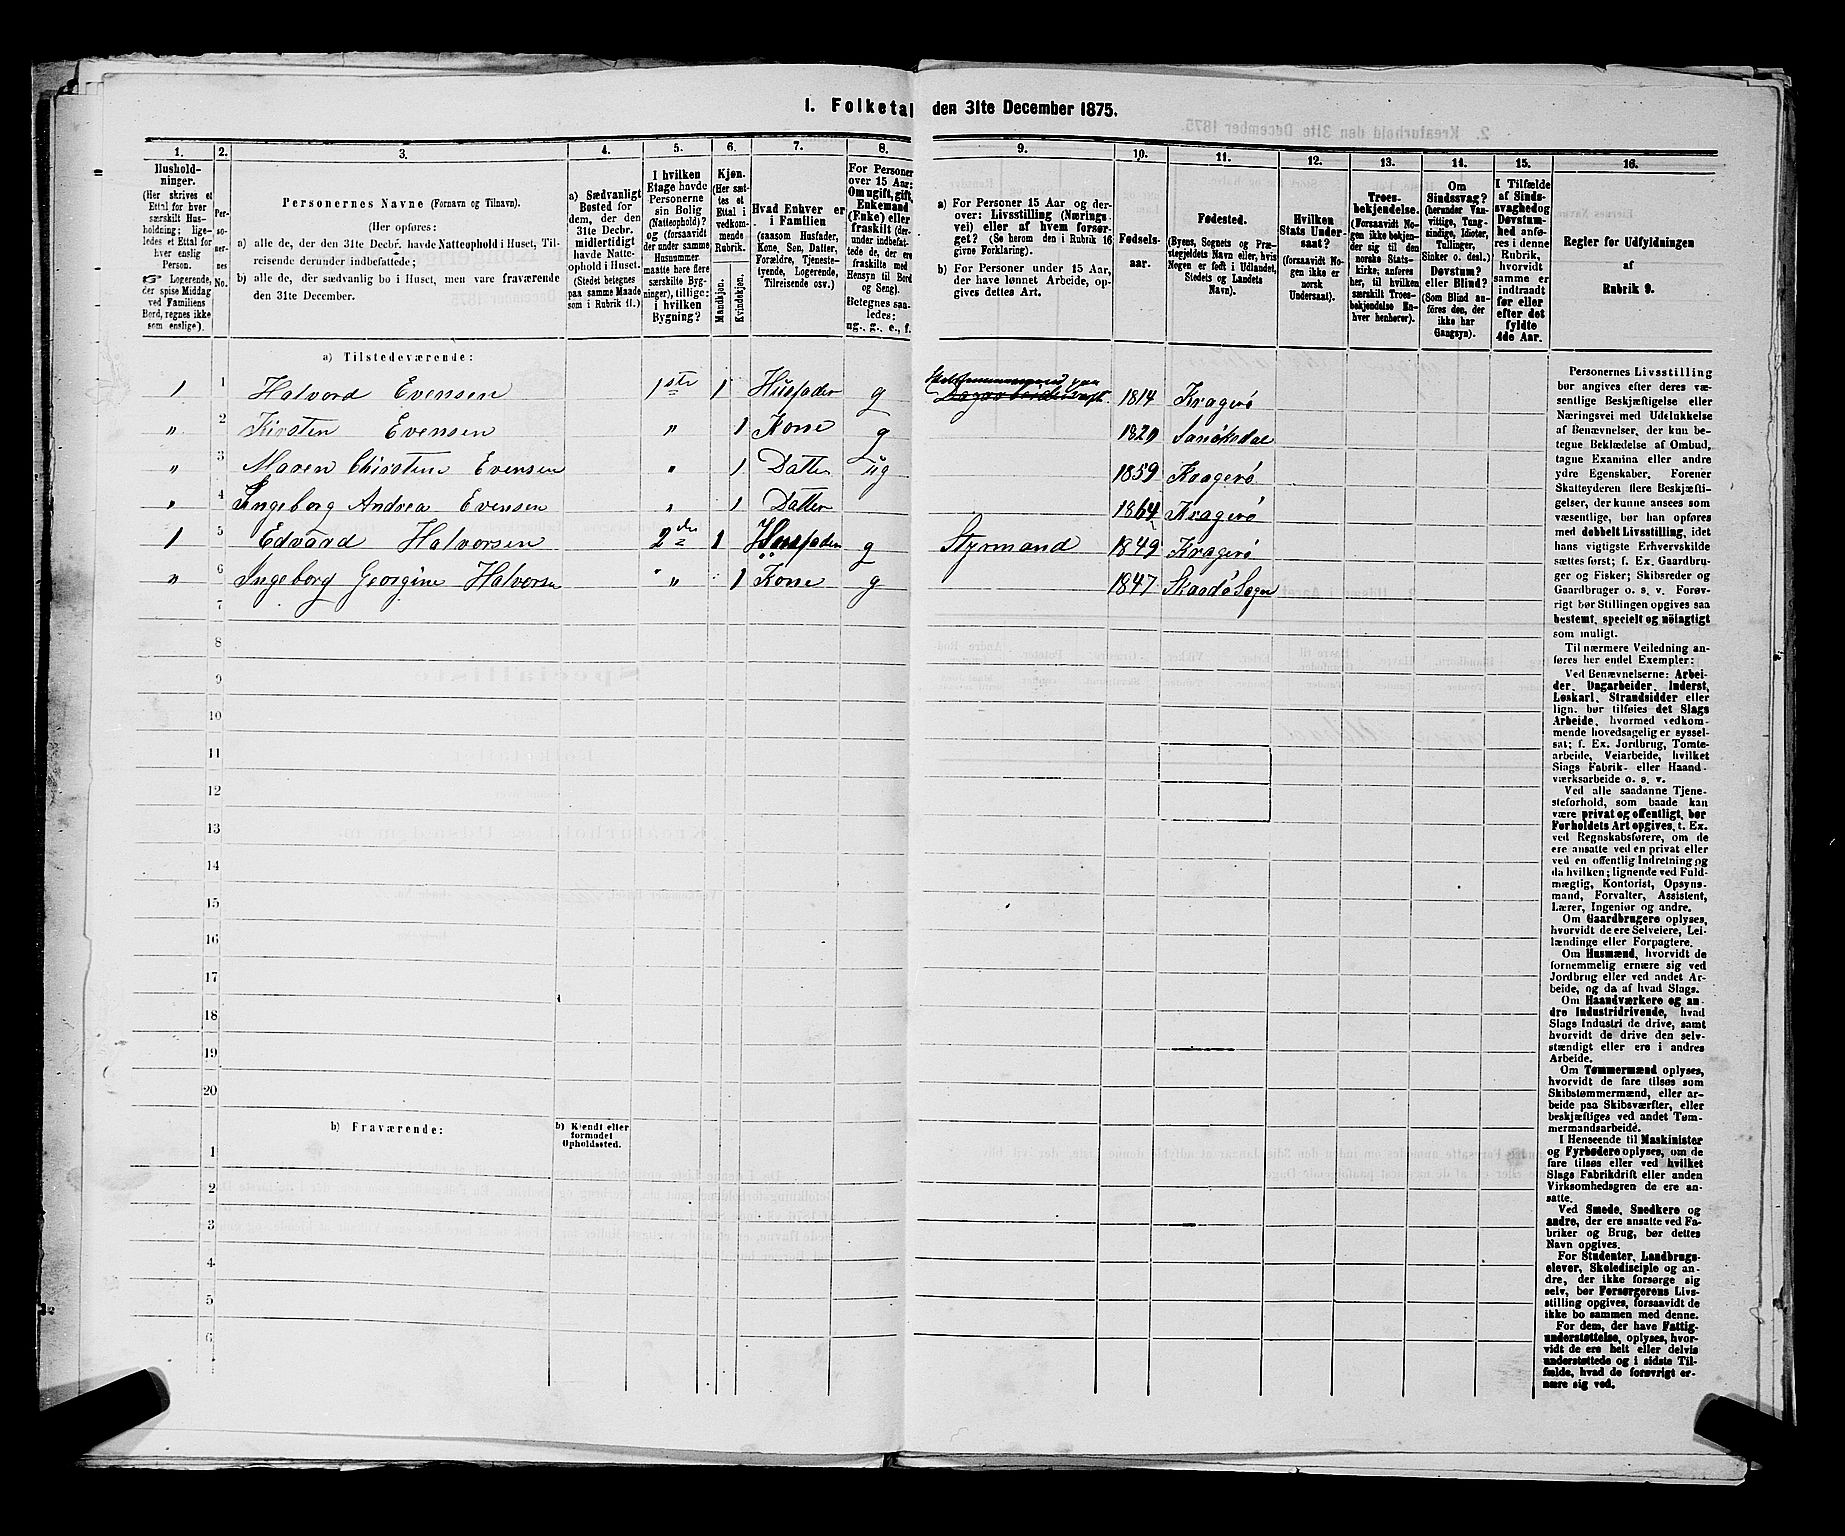 I. Folketal den 31te December 1875.
1. 2. 3. 4. 5. 6. 7. 8. 9. 10. 11. 12. 13. 14. 15. 16.
Hushold-
ninger.
(Her skrives et
Ettal for hver
særskilt Hus-
holdning; lige-
ledes et Ettal for
hver enslig
Person.
Logerende,
der spise Middag
ved Familiens
Bord, regnes ikke
som enslige).
Per-
so-
ner-
nes
No.
Personernes Navne (Fornavn og Tilnavn).
(Her opføres:
a) alle de, der den 31te Decbr. havde Natteophold i Huset, Til-
reisende derunder indbefattede;
b) alle de, der sædvanlig bo i Huset, men vare fraværende
den 31te December.
a) Sædvanligt
Bosted for
dem, der den
31te Decbr.
midlertidigt
havde Natte-
ophold i Huset.
(Stedet betegnes
paa samme Maade
som i Rubrik 11.)
I hvilken
Etage havde
Personerne
sin Bolig
(Natteophold)?
og (forsaavidt
der under samme
Husnummer
maatte høre flere
særskilte Byg-
ninger), tillige:
i hvilken
Bygning?
Kjøn.
(Her sæt-
tes et
Ettal i
vedkom-
mende
Rubrik.
Mandkjøn.
Kvindekjøn.
Hvad Enhver er
i Familien
(saasom Husfader,
Kone, Søn, Datter,
Forældre, Tjeneste-
tyende, Logerende,
Tilreisende osv.)
For Personer
over 15 Aar:
Om ugift, gift,
Enkemand
(Enke) eller
fraskilt (der-
under indbefat-
tede de, der
ere fraskilte med
Hensyn til Bord
og Seng).
Betegnes saa-
ledes:
ug., g., e., f.
a) For Personer 15 Aar og der-
over: Livsstilling (Nærings-
vei) eller af hvem forsør-
get? (Se herom den i Rubrik 16
givne Forklaring).
b) For Personer under 15 Aar,
der have lønnet Arbeide, op-
gives dettes Art.
Fødsels-
aar.
Fødested.
(Byens, Sognets og Præ-
stegjeldets Navn eller, hvis
Nogen er født i Udlandet,
Stedets og Landets
Navn).
Hvilken
Stats Under-
saat?
(forsaavidt No-
gen ikke er
norsk
Undersaat).
Troes-
bekjendelse.
(Forsaavidt No-
gen ikke bekjen-
der sig til den
norske Stats-
kirke, anføres
her, til hvilken
særskilt Troes-
bekjendelse En-
hver henhører).
Om
Sindssvag?
(herunder Van-
vittige, Tung-
sindige, Idioter,
Tullinger,
Sinker o. desl.)
Døvstum?
eller Blind?
(Som Blind an-
føres den, der
ikke har
Gangsyn).
I Tilfælde
af Sinds-
svaghed og
Døvstum-
hed anfø-
res i denne
Rubrik,
hvorvidt
samme er
indtraadt
før eller
efter det
fyldte
4de Aar.
Regler for Udfyldningen
af
Rubrik 9.
a) Tilstedeværende:
1 1 Halvord Evensen 1ste 1 Husfader g Dagarbeider 1814 Kragerö
" 2 Kirsten Evensen " 1 Kone g 1820 Sanökedal
" 3 Maren Chirstine Evensen " 1 Datter ug 1859 Kragerö
" 4 Ingeborg Andrea Evensen " 1 Datter 1864 Kragerö
1 5 Edvard Halvorsen 2den 1 Husfader g Styrmand 1849 Kragerö
" 6 Ingeborg Georgine Halvorsen " 1 Kone g 1847 Skaadö Sogn
7
8
9
10
11
12
13
14
15
16
17
18
19
20
b) Fraværende:
b) Kjendt eller
formodet
Opholdssted.
1
2
3
4
5
6
Personernes Livsstilling
bør angives efter deres væ-
sentlige Beskjæftigelse eller
Næringsvei med Udelukkelse
af Benævnelser, der kun be-
tegne Beklædelse af Ombud,
tagne Examina eller andre
ydre Egenskaber. Forener
Skatteyderen flere Beskjæfti-
gelser, der kunne ansees som
væsentlige, bør han opføres
med dobbelt Livsstilling, idet
hans vigtigste Erhvervskilde
sættes først; f. Ex. Gaardbru-
ger og Fisker; Skibsreder og
Gaardbruger o. s. v. Forøv-
rigt bør Stillingen opgives saa
bestemt, specielt og nöiagtigt
som muligt.
Til nærmere Veiledning an-
føres her endel Exempler:
Ved Benævnelserne: Arbei-
der, Dagarbeider, Inderst,
Løskarl, Strandsidder eller
lign. bør tilføies det Slags
Arbeide, hvormed vedkom-
mende hovedsagelig er syssel-
sat; f. Ex. Jordbrug, Tomte-
arbeide, Veiarbeide, hvilket
Slags Fabrik- eller Haand-
værksarbeide o. s. v.
Ved alle saadanne Tjene-
steforhold, som baade kan
være privat og offentligt, bør
Forholdets Art opgives, t. Ex.
ved Regnskabsførere, om de
ere ansatte ved en privat eller
ved en offentlig Indretning og
da hvilken; lignende ved Fuld-
mægtig, Kontorist, Opsyns-
mand, Forvalter, Assistent,
Lærer, Ingeniør og andre.
Om Gaardbrugere oplyses,
hvorvidt de ere Selveiere, Lei-
lændinge eller Forpagtere.
Om Husmænd, hvorvidt de
fornemmelig ernære sig ved
Jordbrug eller ved andet Ar-
beide, og da af hvad Slags.
Om Haandværkere og an-
dre Industridrivende, hvad
Slags Industri de drive, samt
hvorvidt de drive den selv-
stændigt eller ere i andres
Arbeide.
Om Tømmermænd oplyses,
hvorvidt de fare tilsøs som
Skibstømmermænd, eller ar-
beide paa Skibsværfter, eller
beskjæftiges ved andet Tøm-
mermandsarbeide.
I Henseende til Maskinister
og Fyrbødere oplyses, om de
fare tilsøs eller ved hvilket
Slags Fabrikdrift eller anden
Virksomhedsgren de ere an-
satte.
Ved Smede, Snedkere og
andre, der ere ansatte ved Fa-
briker og Brug, bør dettes
Navn opgives.
For Studenter, Landbrugs-
elever, Skoledisciple og an-
dre, der ikke forsørge sig
selv, bør Forsørgerens Livs-
stilling opgives, forsaavidt de
ikke bo sammen med denne.
For dem, der have Fattig-
understøttelse, oplyses, hvor-
vidt de ere helt eller delvis
understøttede og i sidste Til-
fælde, hvad de forøvrigt er-
nære sig ved.